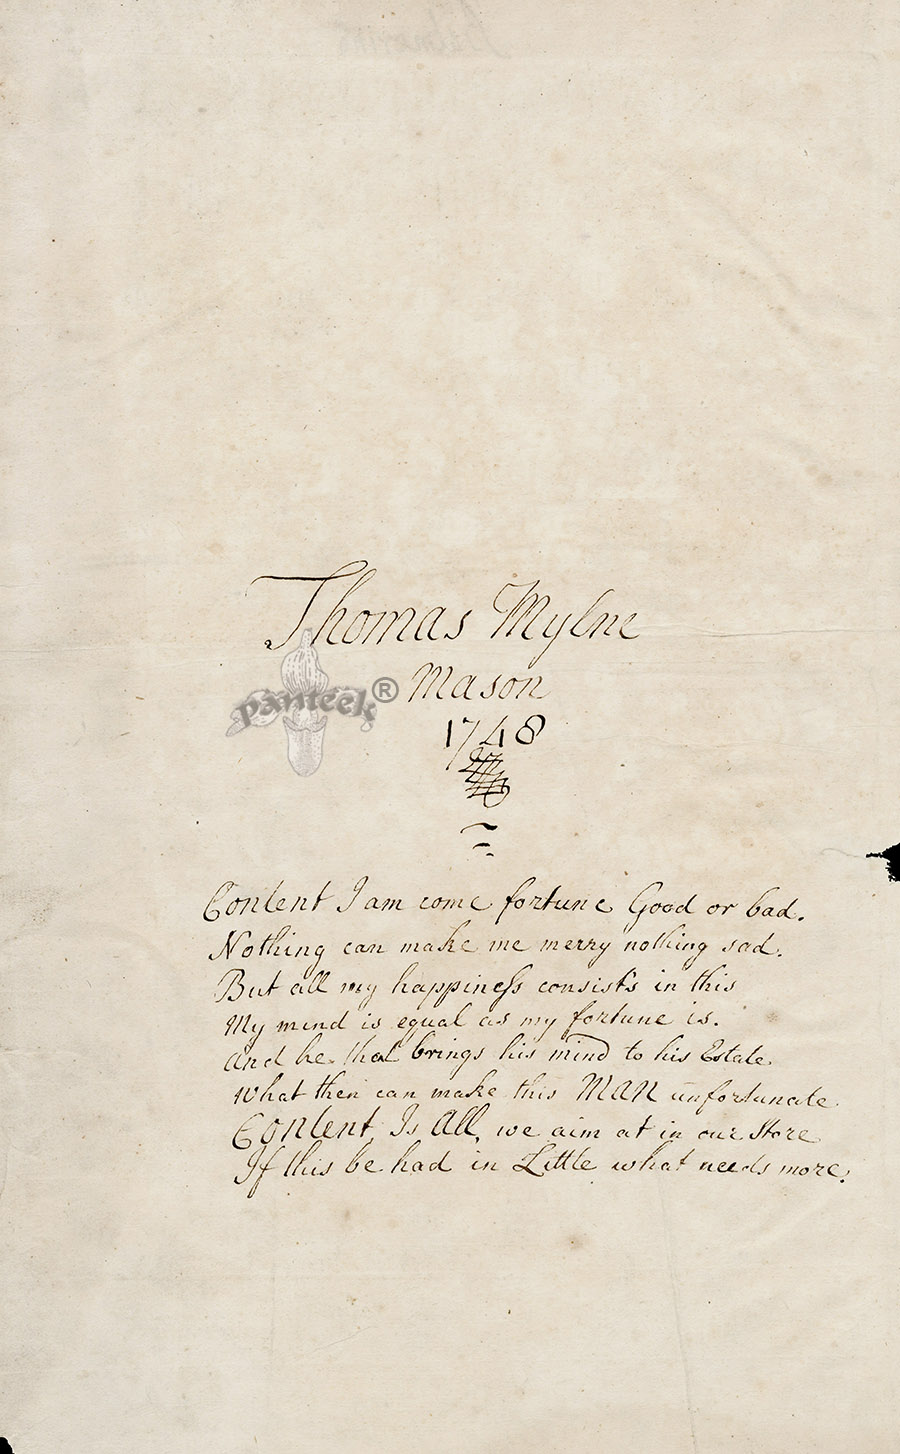 Thomas Mylne
Mason
1748
panteek®
Content I am come fortune Good or bad.
Nothing can make me merry nothing sad.
But all my happiness consists in this
My mind is equal as my fortune is.
And he that brings his mind to his Estate
What then can make this MAN unfortunate
Content Is All, we aim at in our Store
If this be had in Little what needs more.